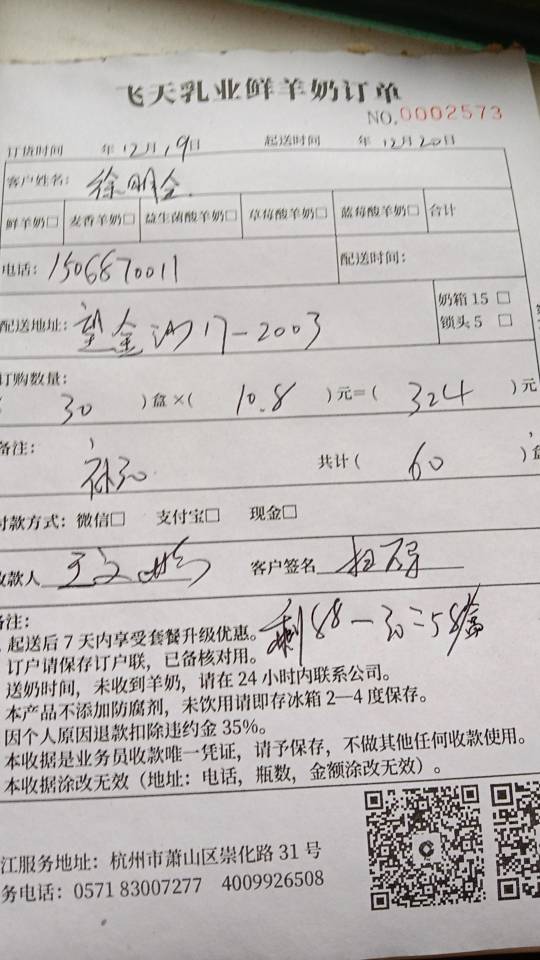 飞天乳业鲜羊奶订单
NO.0002573
订货时间 年12月19日 起送时间 年12月20日
客户姓名：徐明全
鲜羊奶□ 麦香羊奶□ 益生菌酸羊奶□ 草莓酸羊奶□ 蓝莓酸羊奶□ 合计
电话：1506870011 配送时间：
配送地址：望金沙17-2003 奶箱 15 □
锁头 5 □
订购数量：
30 ）盒×（ 10.8 ）元=（ 324 ）元
备注： 共计（ 60 ）盒
付款方式：微信□ 支付宝□ 现金□
收款人 王文 客户签名
备注： 剩88-30=58盒
起送后 7 天内享受套餐升级优惠。
订户请保存订户联，已备核对用。
送奶时间，未收到羊奶，请在 24 小时内联系公司。
本产品不添加防腐剂，未饮用请即存冰箱 2—4 度保存。
因个人原因退款扣除违约金 35%。
本收据是业务员收款唯一凭证，请予保存，不做其他任何收款使用。
本收据涂改无效（地址：电话，瓶数，金额涂改无效）。
江服务地址：杭州市萧山区崇化路 31 号
务电话：0571 83007277 4009926508